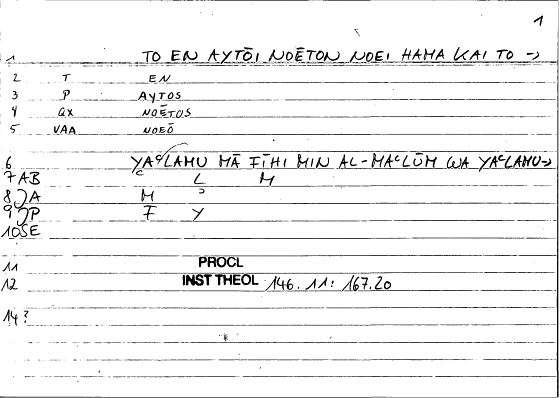 1
1 TO EN AYTŌI NOĒTON NOEI HAMA KAI TO →
2 T EN
3 P AYTOS
4 QX NOĒTOS
5 VAA NOEŌ
6 YAᶜLAMU MĀ FĪHI MIN AL-MAᶜLŪM WA YAᶜLAMU→
7 AB C L M
8 A M
9 P F Y
10 SE
11 PROCL
12 INST THEOL 146.11: 167.20
14?